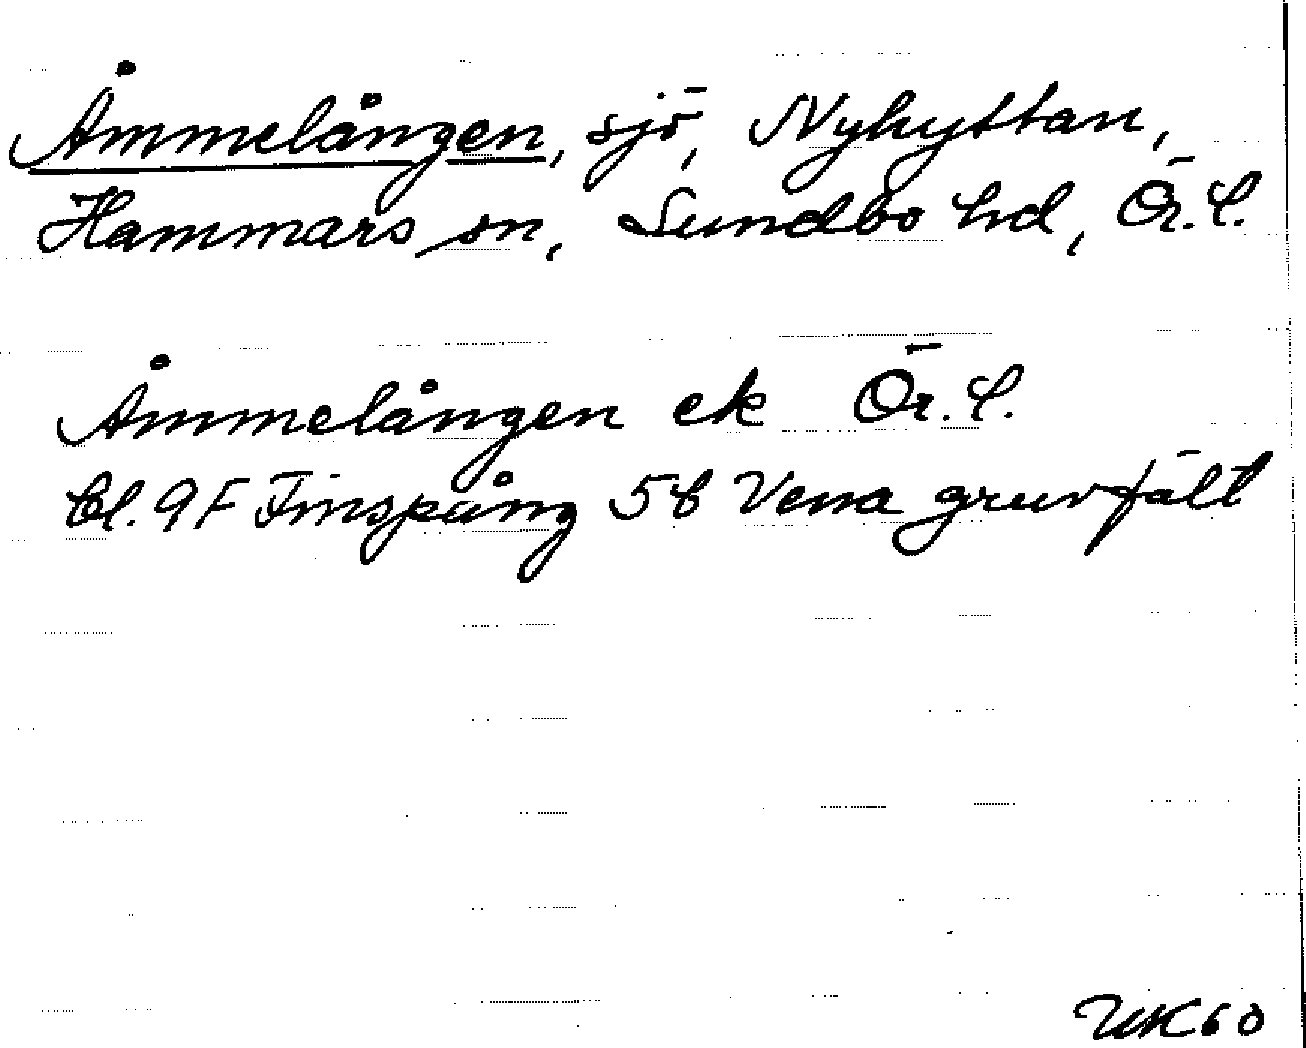 Åmmelången, sjö, Nyhyttan,
Hammars sn, Sundbo hd, Ör.l.
Åmmelången ek Ör.l.
bl. 9F Finspång 5b Vena gruvfält